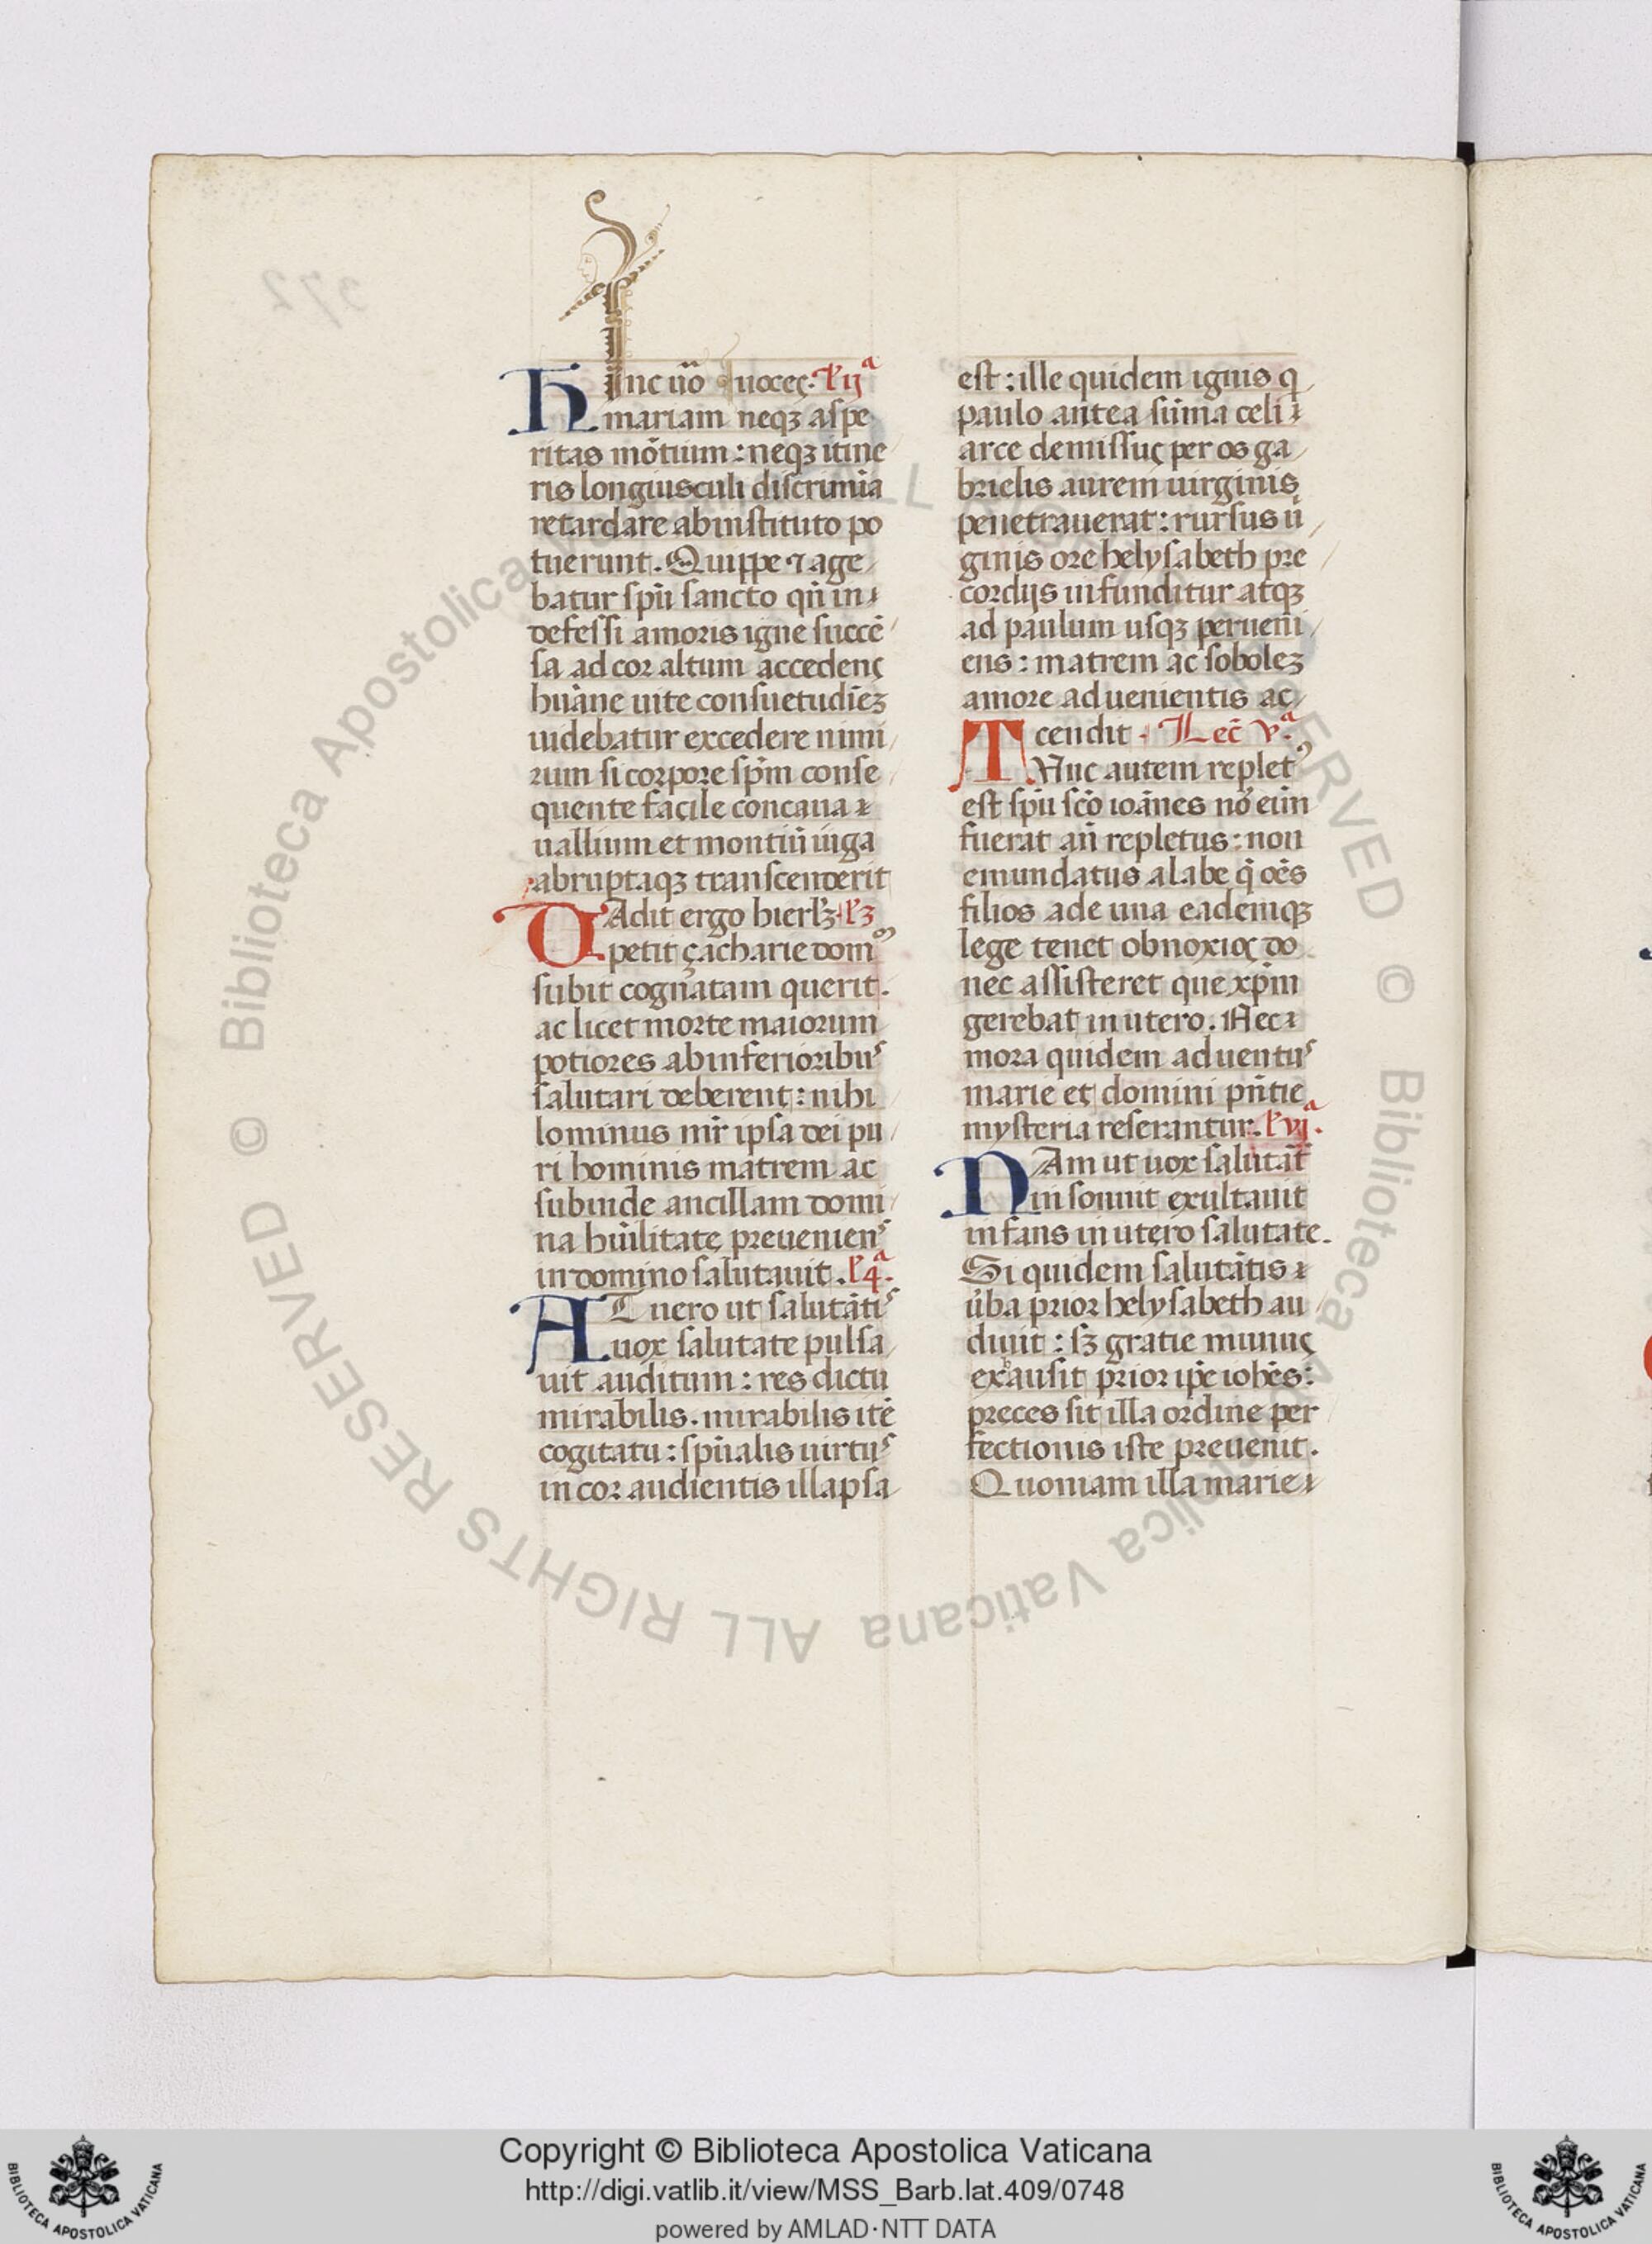 372
Hinc ūo uoces. l'ij^a
mariam neqꝫ aspe
ritas mōtium: neqꝫ itine
ris longiusculi discrimīa
retardare ab instituto po
tuerunt. Quippe ⁊ age
batur spū sancto qn̄ in
defessi amoris igne succē
sa ad cor altum accedens
huāne uite consuetudīeꝫ
uidebatur excedere nimi
rum si corpore spm̄ conse
quente facile concaua
uallium et montiū iuga
abruptaqꝫ transcenderit
Uadit ergo hierlꝫ. l'3
petit çacharie domꝰ
subit cognatam querit.
ac licet morte maiorum
potiores ab inferioribus
salutari deberent: nihi
lominus mr̄ ipsa dei pu
ri hominis matrem ac
subinde ancillam domi
na hūilitate preueniens
in domino salutauit. l'4^a.
AT uero ut salutātis
uox salutate pulsa
uit auditum: res dictu
mirabilis. mirabilis itē
cogitatu: spūalis uirtus
in cor audientis illapsa
est: ille quidem ignis q
paulo antea sūma celi
arce demissus per os ga
brielis aurem uirginis
penetrauerat: rursus ū
ginis ore helysabeth pre
cordijs infunditur atqꝫ
ad paulum usqꝫ perueni
ens: matrem ac soboleꝫ
amore aduenientis ac
cendit. Lec̄ v^a.
TVnc autem repletꝰ
est spū scō ioānes nō eīm
fuerat an̄ repletus: non
emundatus a labe q̄ oēs
filios ade una eademqꝫ
lege tenet obnoxios do
nec assisteret que xpm̄
gerebat in utero. Nec
mora quidem aduentus
marie et domini pn̄tie
mysteria reserantur. l'vj^a.
NAm ut uox salutāt
insonuit exultauit
infans in utero salutate.
Si quidem salutātis
ūba prior helysabeth au
diuit: sꝫ gratie munus
exausit prior ipē iohēs:
preces sit illa ordine per
fectionis iste preuenit.
Quoniam illa marie
© Biblioteca Apostolica Vaticana ALL RIGHTS RESERVED © Biblioteca Apostolica Vaticana ALL RIGHTS RESERVED
Copyright © Biblioteca Apostolica Vaticana
http://digi.vatlib.it/view/MSS_Barb.lat.409/0748
powered by AMLAD·NTT DATA
BIBLIOTECA APOSTOLICA VATICANA
BIBLIOTECA APOSTOLICA VATICANA